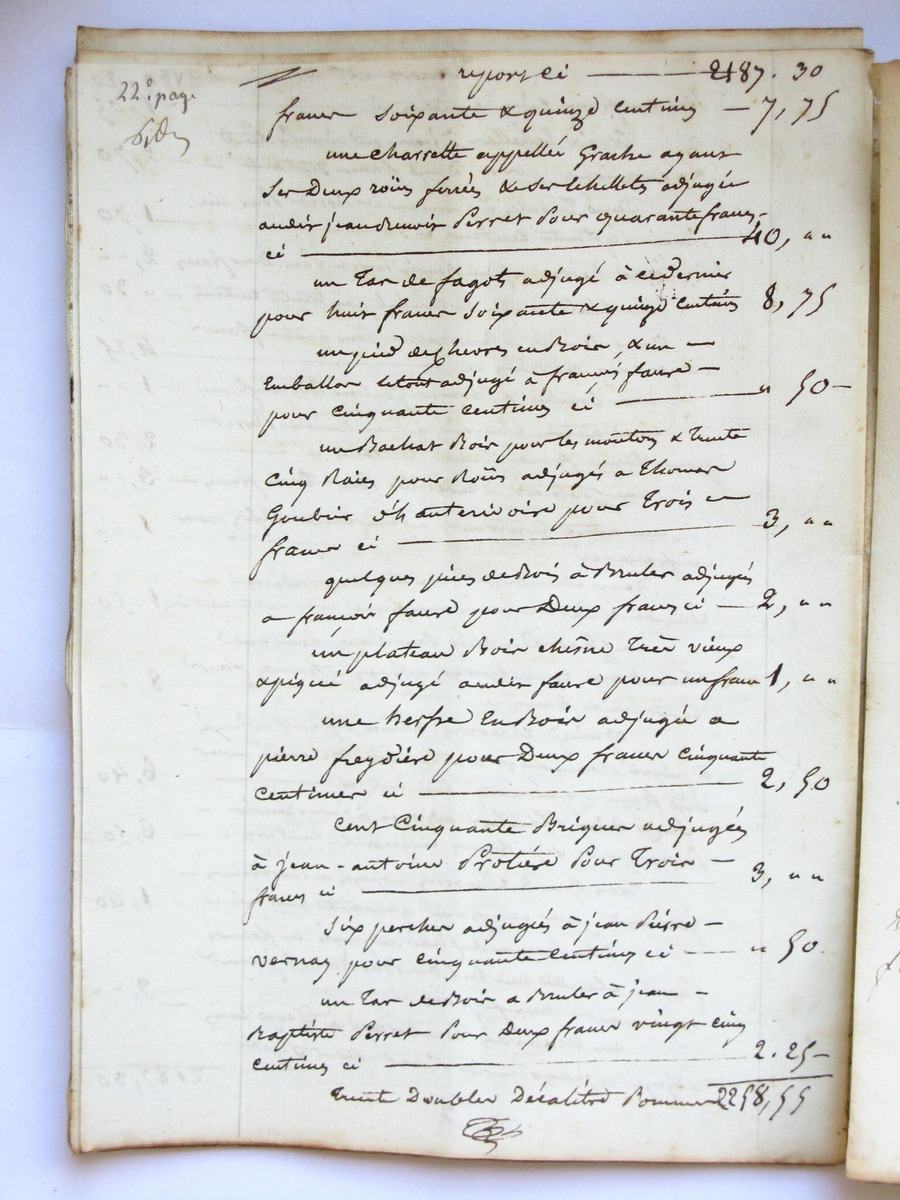 22e. page
report ci — 2187. 30
francs soixante & quinze centimes — 7, 75
une charrette appellée Grache ayant
ses Deux roües ferrées & ses Echellettes adjugée
audit jean Benoit Perret Pour quarante francs
ci — 40, " "
un Tas de fagots adjugé à ce dernier
pour huit francs soixante & quinze centimes 8, 75
un pied de chevres en Bois, & un
Emballon le tout adjugé à françois faure
pour cinquante centimes ci — " 50
un Bachat Bois pour les moutons & trente
cinq Raies pour Roües adjugés a Thomas
Goubier d'hauterivoire pour Trois
francs ci — 3, " "
quelques pièces de Bois à Bruler adjugés
a françois faure pour Deux francs ci — 2, " "
un plateau Bois chêsne Très vieux
& piqué adjugé audit faure pour un franc 1, " "
une herse En Bois adjugée a
pierre freydière pour Deux francs cinquante
centimes ci — 2, 50
cent cinquante Briques adjugées
à jean-antoine Protière Pour Trois
francs ci — 3, " "
six perches adjugées à jean Pierre
vernay pour cinquante centimes ci — " 50
un Tas de Bois a Bruler à jean
Baptiste Perret Pour Deux francs vingt cinq
centimes ci — 2. 25
trente Doubles Décalitres Pommes 2258, 55